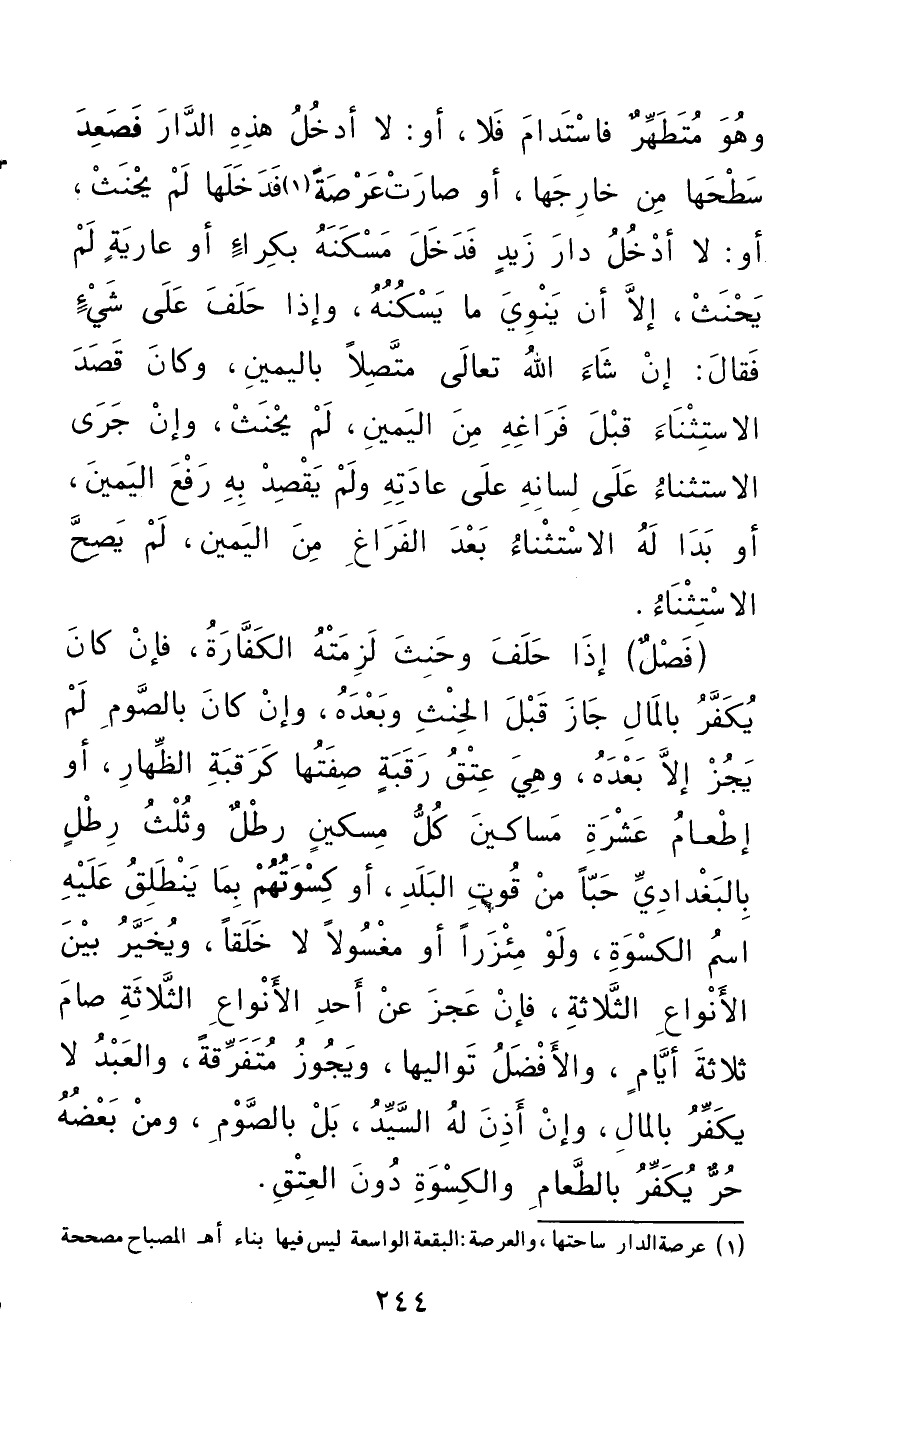 وهُوَ مُتَطَهِّرٌ فاسْتَدامَ فَلا ، أو: لا أدخُلُ هذِهِ الدَّارَ فَصَعِدَ
سَطْحَها مِن خارِجَها ، أو صارَتْ عَرْصَةً (١) فَدَخَلَها لَمْ يَحْنَثْ ،
أو: لا أدْخُلُ دارَ زَيدٍ فَدَخَلَ مَسْكَنَهُ بكِراءٍ أو عاريَةٍ لَمْ
يَحْنَثْ ، إلاَّ أن يَنْوِيَ ما يَسْكُنُهُ ، وإذا حَلَفَ عَلَى شَيْءٍ
فَقالَ: إنْ شَاءَ اللهُ تعالَى متَّصِلاً باليمينِ ، وكانَ قَصَدَ
الاستِثْنَاءَ قبْلَ فَرَاغِهِ مِنَ اليَمينِ ، لَمْ يحْنَثْ ، وإنْ جَرَى
الاستثناءُ عَلَى لِسانِهِ علَى عادَتِهِ ولَمْ يَقْصِدْ بِهِ رَفْعَ اليَمينَ ،
أو بَدَا لَهُ الاسْتِثْناءُ بَعْدَ الفَرَاغِ مِنَ اليَمين ، لَمْ يَصِحَّ
الاسْتِثْنَاءُ .
(فَصْلٌ) إذَا حَلَفَ وحَنِثَ لَزِمَتْهُ الكَفَّارَةُ ، فإنْ كانَ
يُكَفَّرُ بالمَالِ جَازَ قَبْلَ الحِنْثِ وبَعْدَهُ ، وإنْ كانَ بالصَّومِ لَمْ
يَجُزْ إلاَّ بَعْدَهُ ، وهِيَ عِتْقُ رَقَبَةٍ صِفَتُها كَرَقبَةِ الظِّهارِ ، أو
إطْعـامُ عَشْرَةِ مَساكـينَ كُلُّ مِسكينٍ رطْلٌ وثُلْثُ رِطْلٍ
بالبَغْدادِيِّ حَبّاً منْ قُوتِ البَلَدِ ، أو كِسْوَتُهُمْ بِمَا يَنْطَلِقُ عَلَيْهِ
اسمُ الكسْوَةِ ، ولَوْ مِئْزَراً أو مغْسُولاً لا خَلَقاً ، ويُخَيَّرُ بيْنَ
الأنْواعِ الثَّلاثةِ ، فإنْ عَجزَ عنْ أَحدِ الأنْواعِ الثَّلاثَةِ صامَ
ثلاثةَ أيَّامٍ ، والأفْضَلُ تَواليها ، ويَجُوزُ مُتَفَرِّقةً ، والعَبْدُ لا
يكَفِّرُ بالمالِ ، وإنْ أَذِنَ لهُ السَّيِّدُ ، بَلْ بالصَّوْمِ ، ومنْ بَعْضُهُ
حُرٌّ يُكَفِّرُ بالطَّعامِ والكِسْوَةِ دُونَ العِتْقِ .
(١) عرصة الدار ساحتها ، والعرصة : البقعة الواسعة ليس فيها بناء أهـ المصباح مصححة
٢٤٤